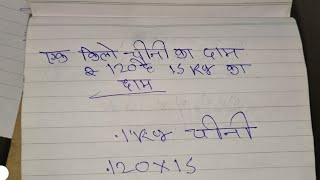 एक किलो चीनी का दाम
₹ 120 है 15 Kg का
दाम
.1 Kg चीनी
.120×15